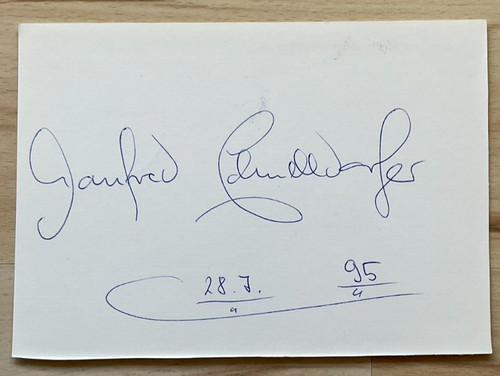 Manfred Schnelldorfer
28.7. 95